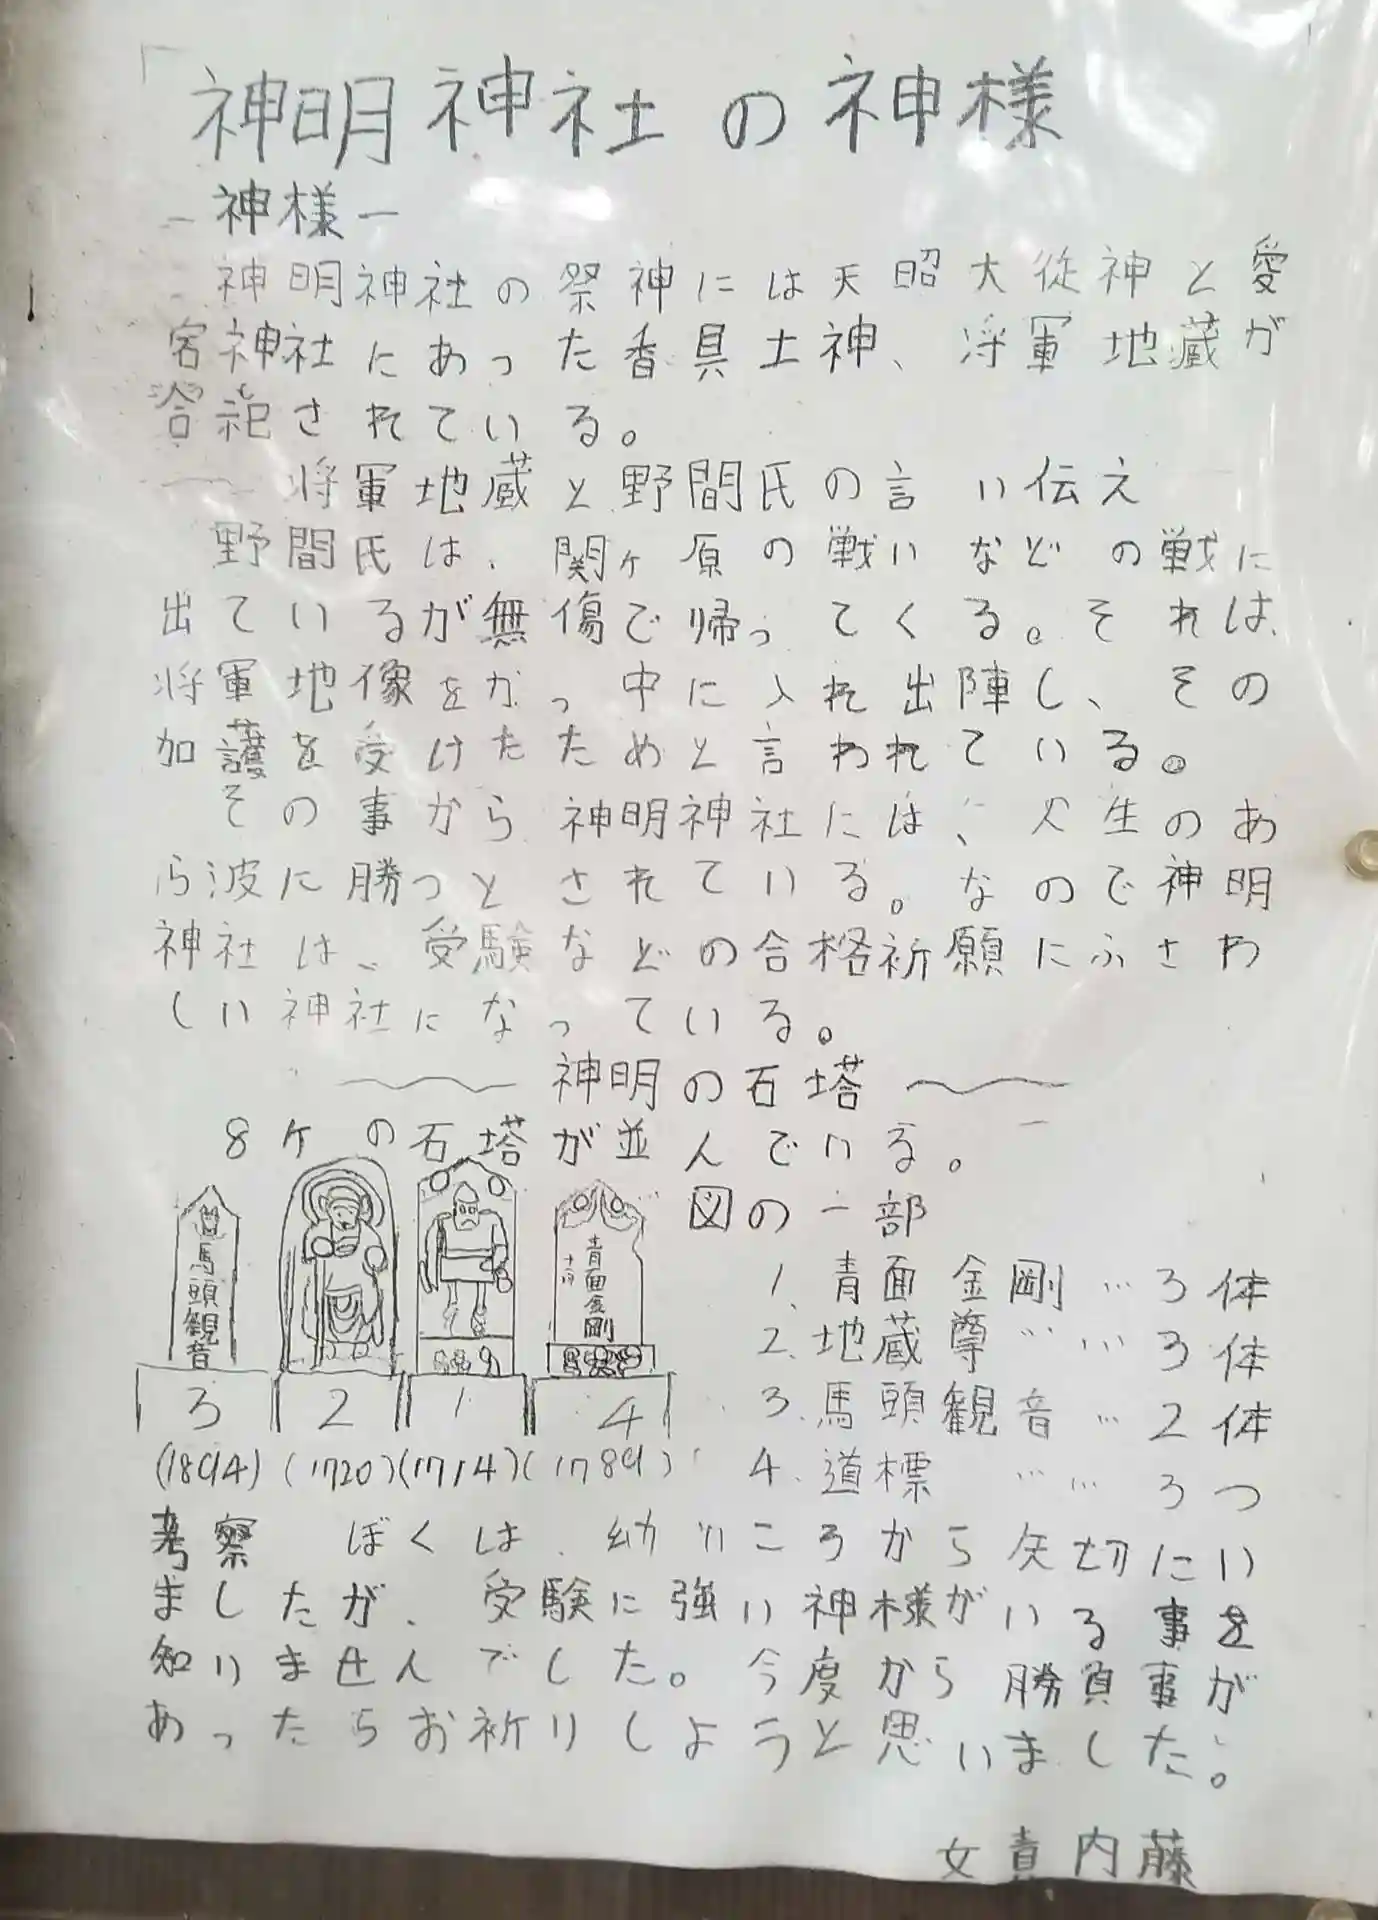 神明神社の神様
－神様－
神明神社の祭神には天昭大従神と愛
宕神社にあった香具土神、将軍地蔵が
合祀されている。
将軍地蔵と野間氏の言い伝え
野間氏は、関ヶ原の戦いなどの戦に
出ているが無傷で帰ってくる。それは、
将軍地像をかっ中に入れ出陣し、その
加護を受けたためと言われている。
その事から神明神社には、人生のあ
ら波に勝つとされている。なので神明
神社は、受験などの合格祈願にふさわ
しい神社になっている。
〜神明の石塔〜
8ヶの石塔が並んでいる。
図の一部
1.青面金剛…3体
2.地蔵尊……3体
3.馬頭観音…2体
4.道標……3つ
馬頭観音
青面金剛
3 2 1 4
(1894)(1720)(1714)(1789)
考察 ぼくは、幼いころから矢切にい
ましたが、受験に強い神様がいる事を
知りませんでした。今度から勝負事が
あったらお祈りしようと思いました。
文責内藤